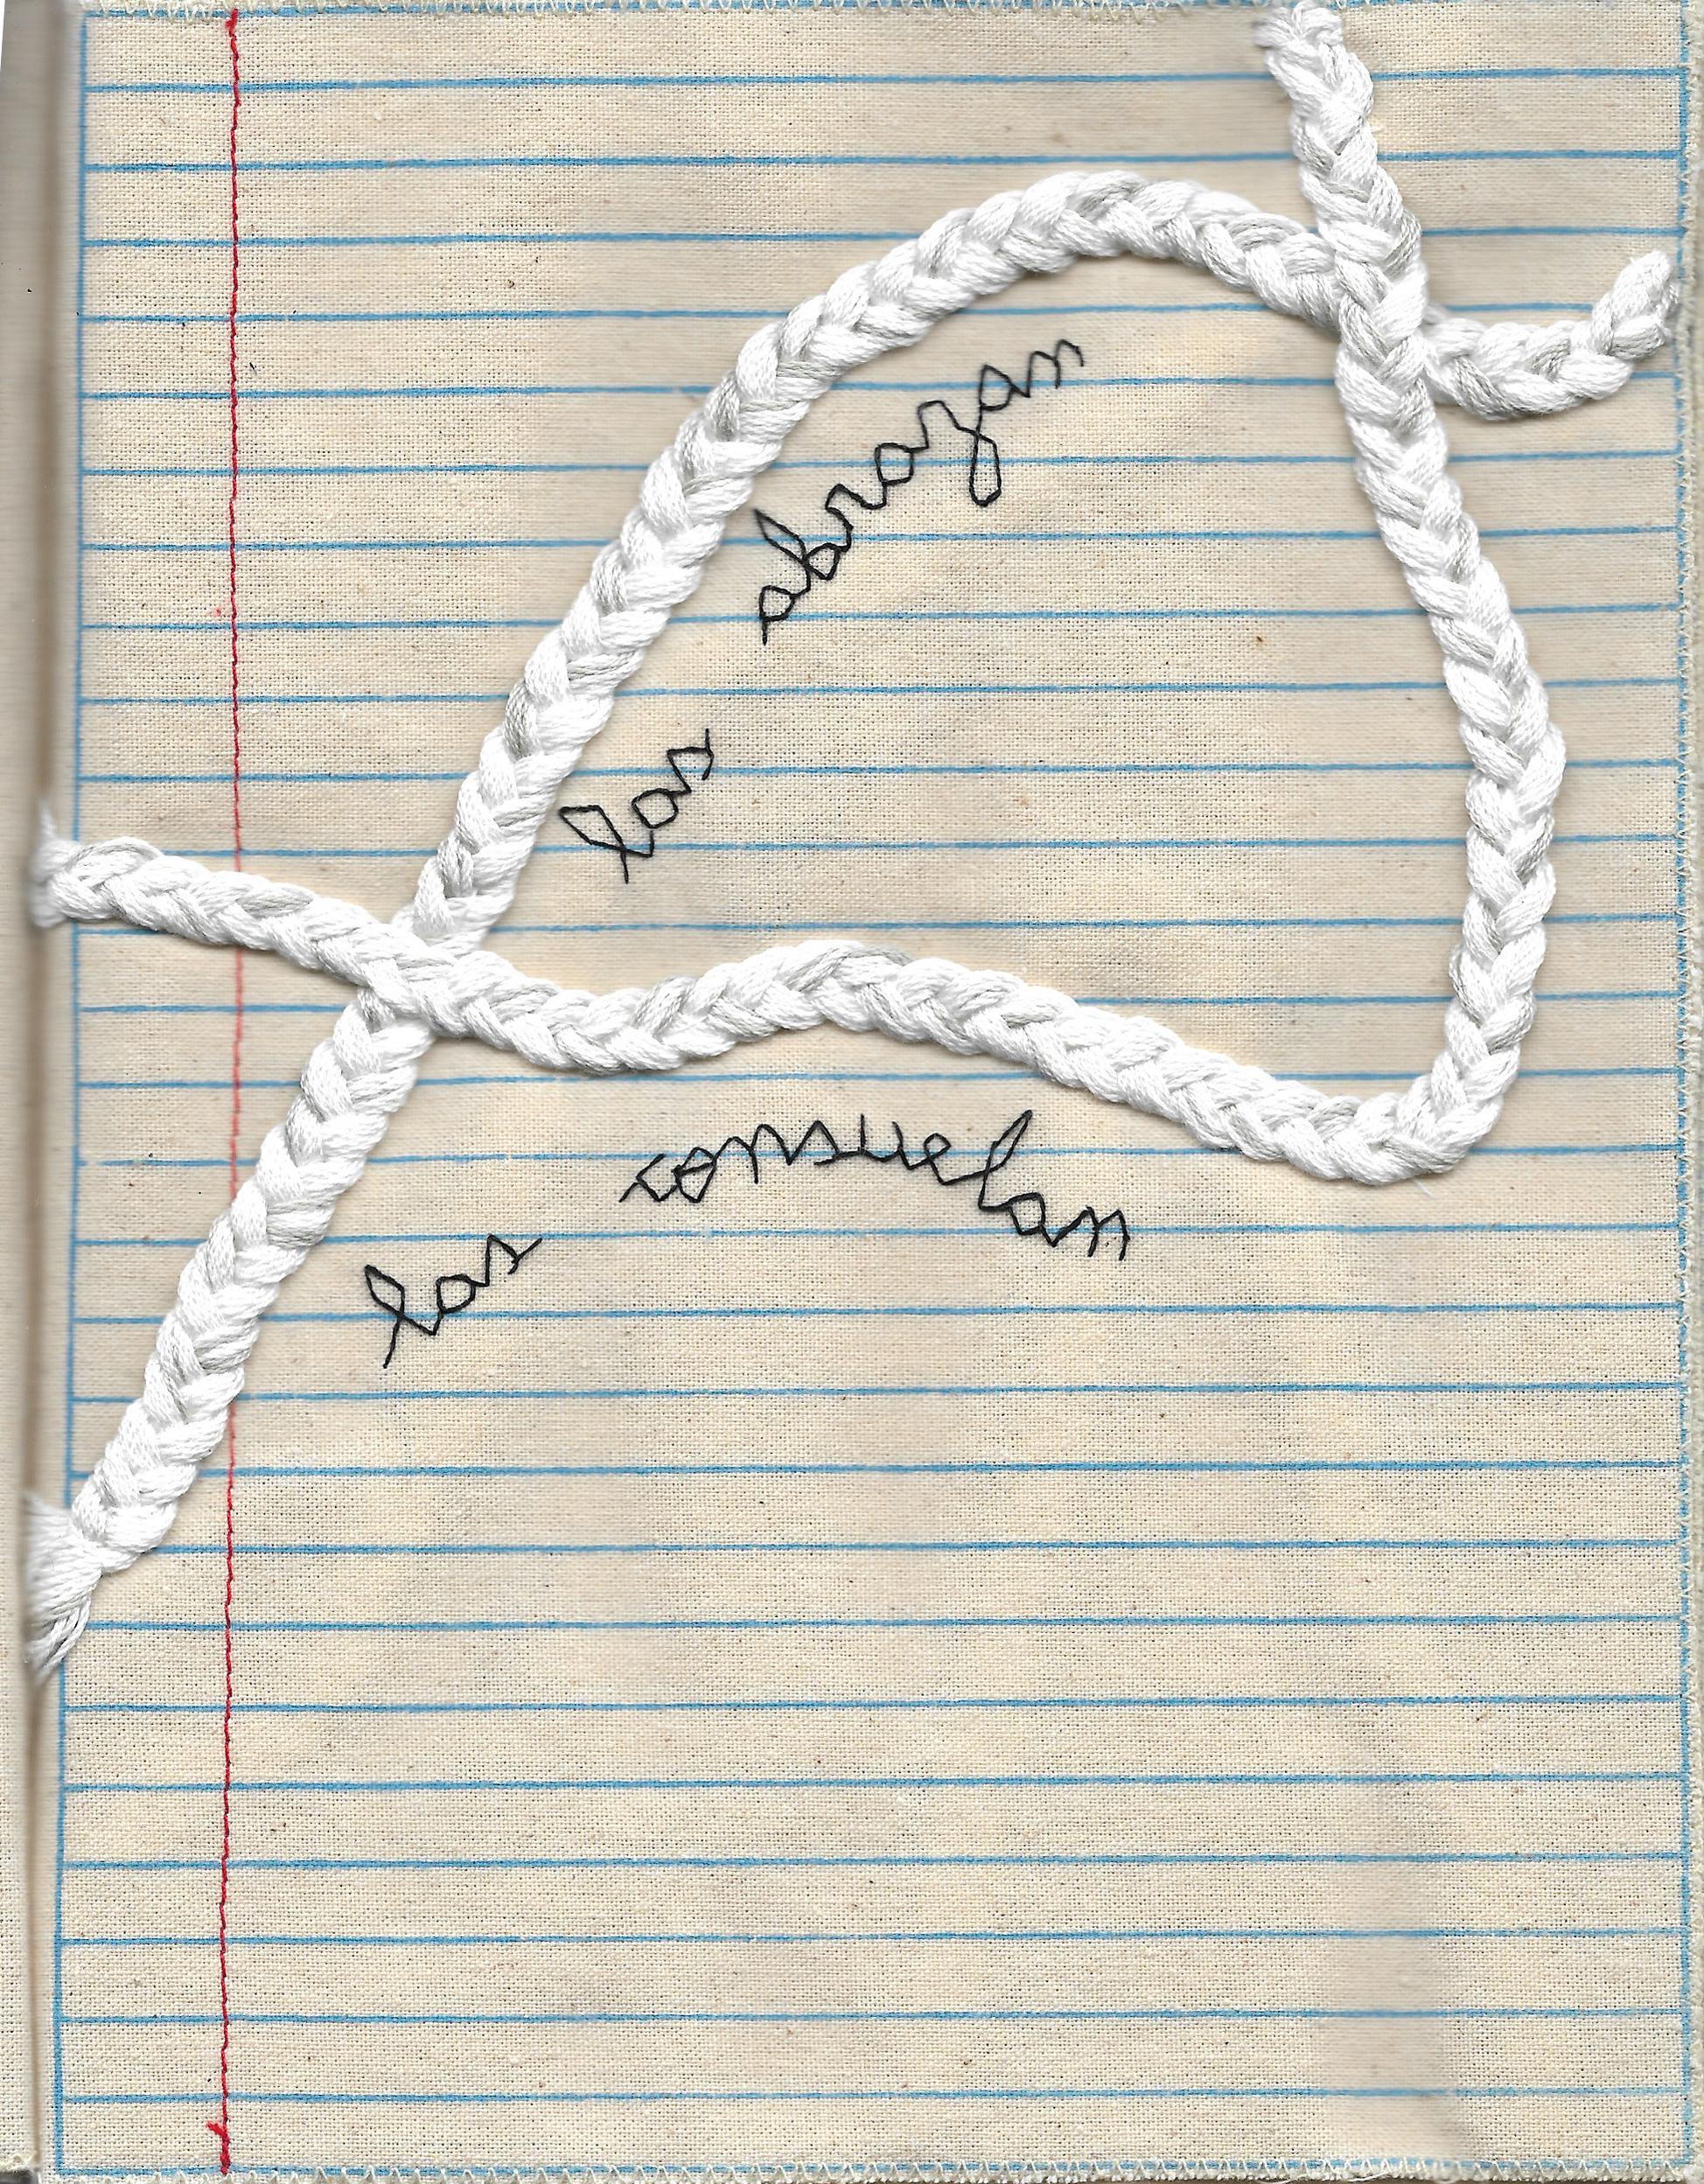 las abrazan
las consuelan